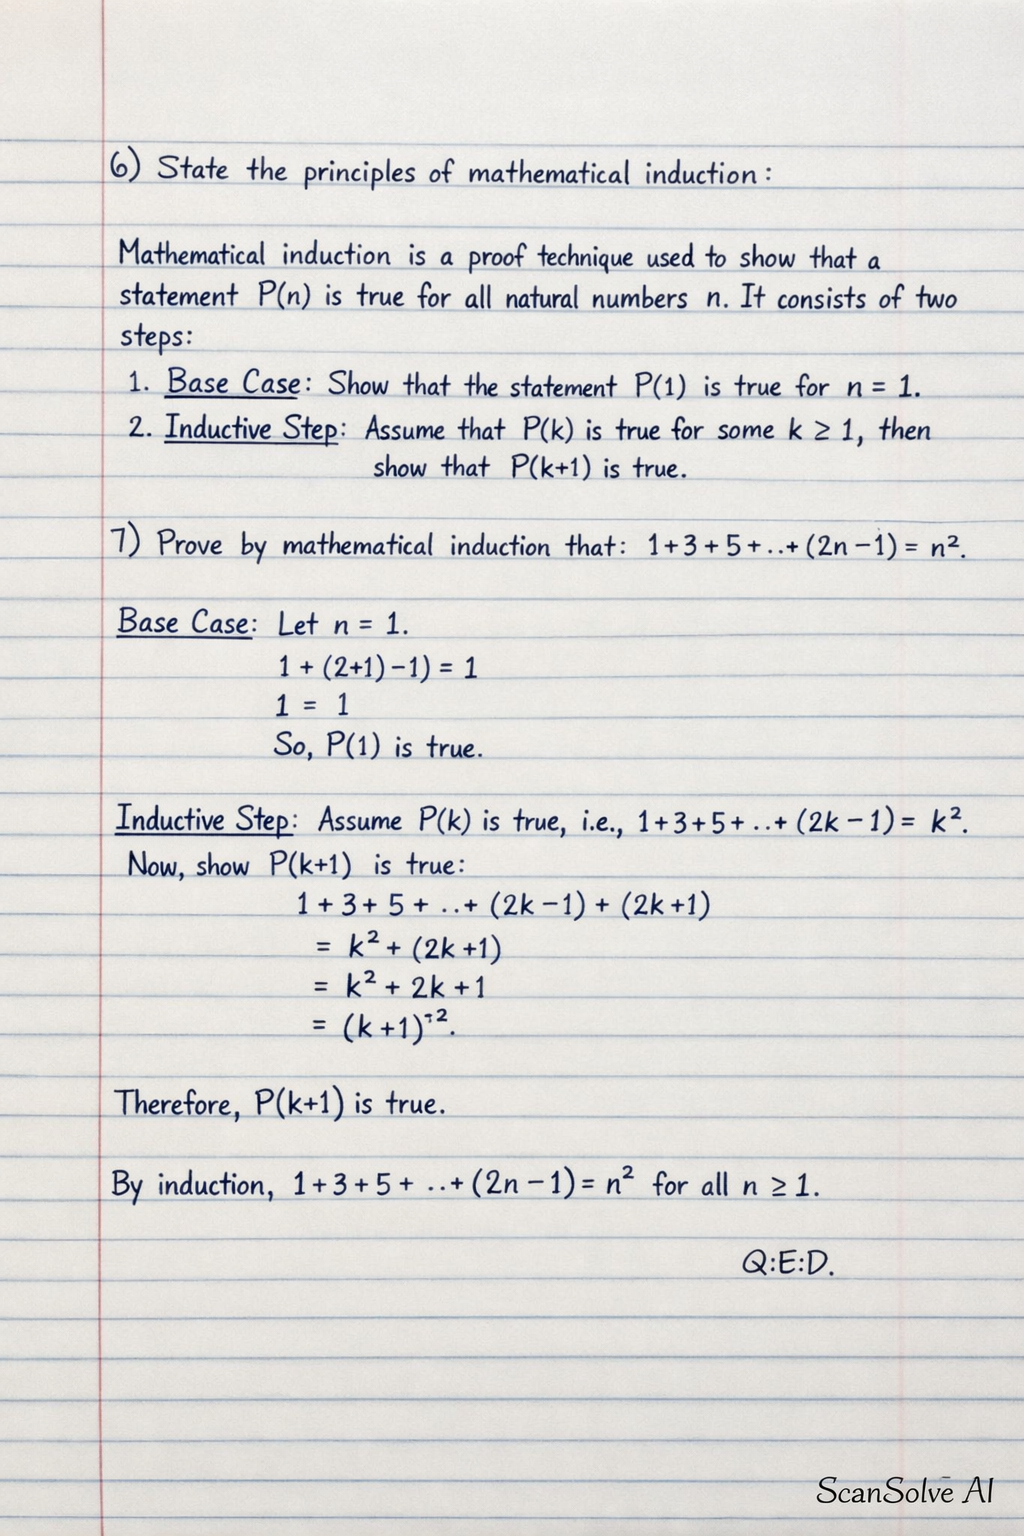 6) State the principles of mathematical induction:
Mathematical induction is a proof technique used to show that a
statement P(n) is true for all natural numbers n. It consists of two
steps:
1. Base Case: Show that the statement P(1) is true for n = 1.
2. Inductive Step: Assume that P(k) is true for some k ≥ 1, then
show that P(k+1) is true.
7) Prove by mathematical induction that: 1+3+5+..+(2n-1) = n².
Base Case: Let n = 1.
1 + (2+1)-1) = 1
1 = 1
So, P(1) is true.
Inductive Step: Assume P(k) is true, i.e., 1+3+5+..+(2k-1) = k².
Now, show P(k+1) is true:
1+3+5+..+(2k-1)+(2k+1)
= k² + (2k+1)
= k² + 2k + 1
= (k+1)².
Therefore, P(k+1) is true.
By induction, 1+3+5+..+(2n-1) = n² for all n ≥ 1.
Q:E:D.
ScanSolve AI